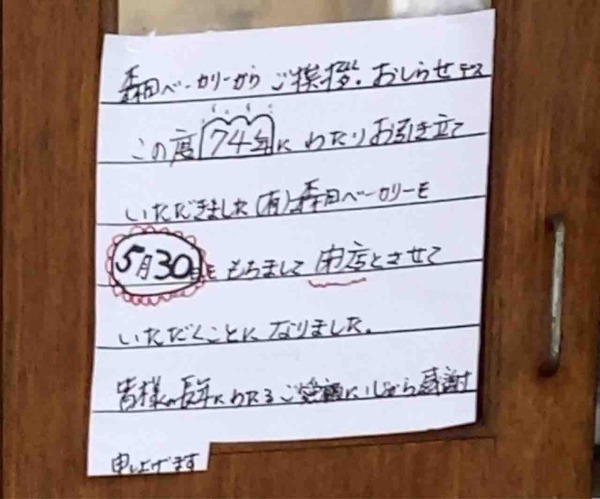 森田ベーカリーから ご挨拶。おしらせデス
この度 74年にわたりお引き立て
いただきました(有)森田ベーカリーも
5月30日をもちまして閉店とさせて
いただくことになりました。
皆様の長年にわたるご愛顧に心から感謝
申し上げます